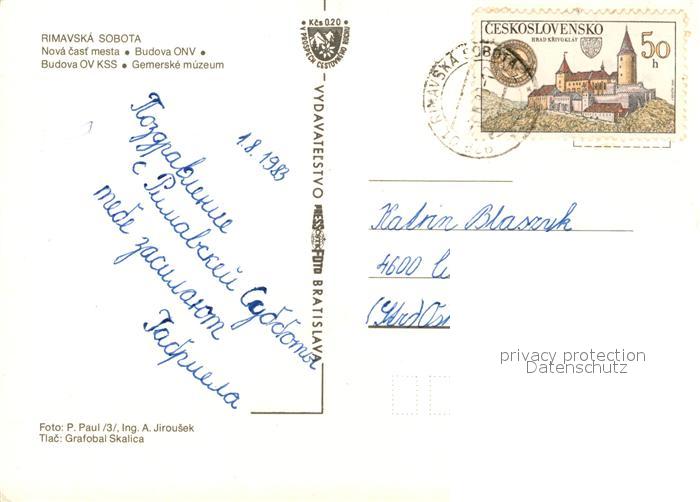 RIMAVSKÁ SOBOTA
Nová časť mesta ● Budova ONV ●
Budova OV KSS ● Gemerské múzeum
Kčs 0.20
VYDAVATEĽSTVO PRESSFOTO BRATISLAVA
ČESKOSLOVENSKO
HRAD KŘIVOKLÁT
50
h
RIMAVSKÁ SOBOTA
1.8.1983
Поздравление
с Римавской Субботы
тебе засилают
Габриела
Katrin Blaszyk
4600
privacy protection
Datenschutz
Foto: P. Paul /3/, Ing. A. Jiroušek
Tlač: Grafobal Skalica